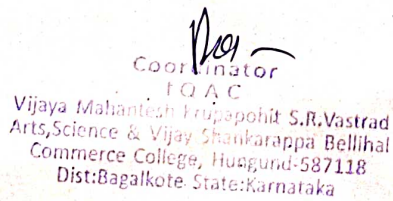 Coordinator
I Q A C
Vijaya Mahantesh Krupaposhit S.R.Vastrad
Arts,Science & Vijay Shankarappa Bellihal
Commerce College, Hungund-587118
Dist:Bagalkote State:Karnataka